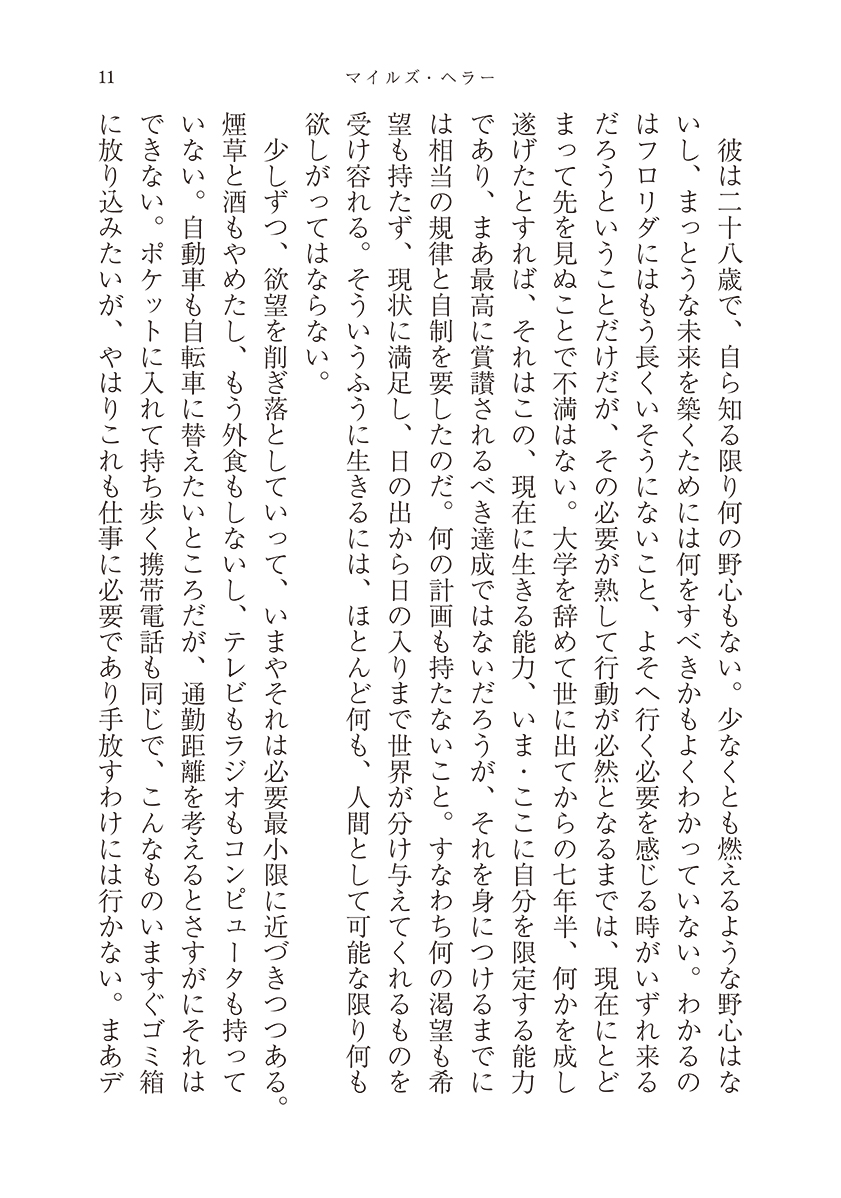 11
マイルズ・ヘラー
彼は二十八歳で、自ら知る限り何の野心もない。少なくとも燃えるような野心はな
いし、まっとうな未来を築くためには何をすべきかもよくわかっていない。わかるの
はフロリダにはもう長くいそうにないこと、よそへ行く必要を感じる時がいずれ来る
だろうということだけだが、その必要が熟して行動が必然となるまでは、現在にとど
まって先を見ぬことで不満はない。大学を辞めて世に出てからの七年半、何かを成し
遂げたとすれば、それはこの、現在に生きる能力、いま・ここに自分を限定する能力
であり、まあ最高に賞讃されるべき達成ではないだろうが、それを身につけるまでに
は相当の規律と自制を要したのだ。何の計画も持たないこと。すなわち何の渇望も希
望も持たず、現状に満足し、日の出から日の入りまで世界が分け与えてくれるものを
受け容れる。そういうふうに生きるには、ほとんど何も、人間として可能な限り何も
欲しがってはならない。
少しずつ、欲望を削ぎ落としていって、いまやそれは必要最小限に近づきつつある。
煙草と酒もやめたし、もう外食もしないし、テレビもラジオもコンピュータも持って
いない。自動車も自転車に替えたいところだが、通勤距離を考えるとさすがにそれは
できない。ポケットに入れて持ち歩く携帯電話も同じで、こんなものいますぐゴミ箱
に放り込みたいが、やはりこれも仕事に必要であり手放すわけには行かない。まあデ